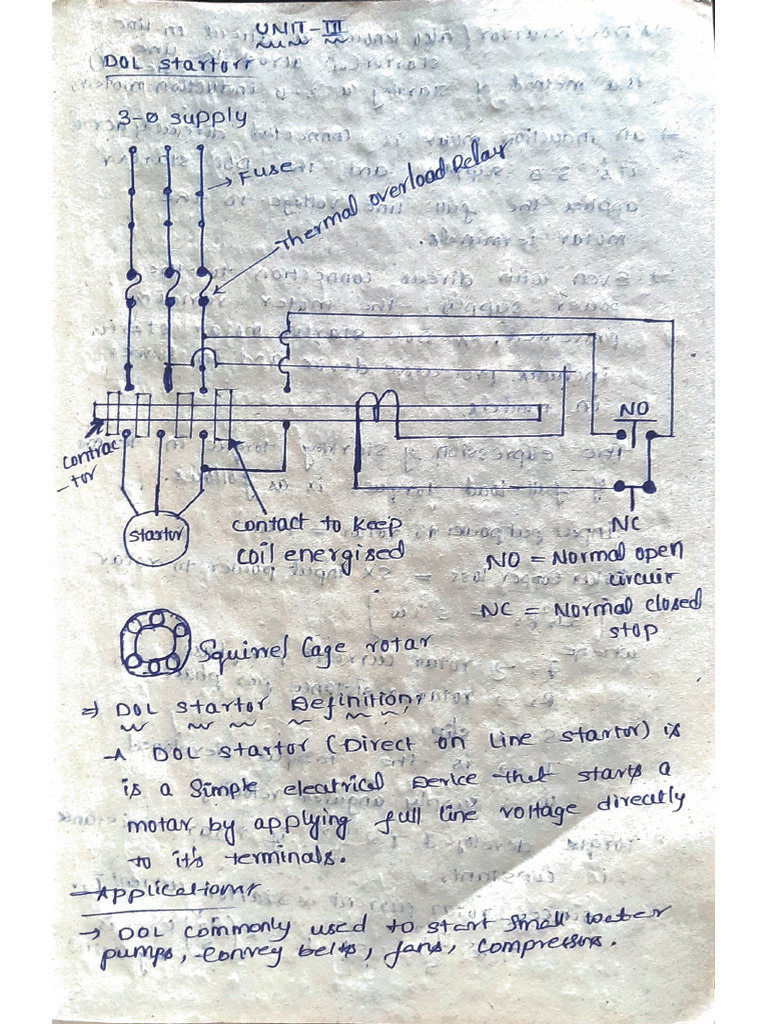 UNIT-III
DOL startorr
3-ø supply
Fuse
Thermal overload Relay
NO
contrac
-tor
startor
contact to keep
coil energised
NC
NO = Normal open
circuir
NC = Normal closed
stop
Squirrel Cage rotar
⇒ DOL startor Definition,
A DOL startor (Direct on Line startor) is
is a Simple electrical Device that starts a
motar by applying full line voltage direcatly
to it's terminals.
Applicationr
→ DOL commonly used to start small water
pumps, Convey belts, fans, compressors.